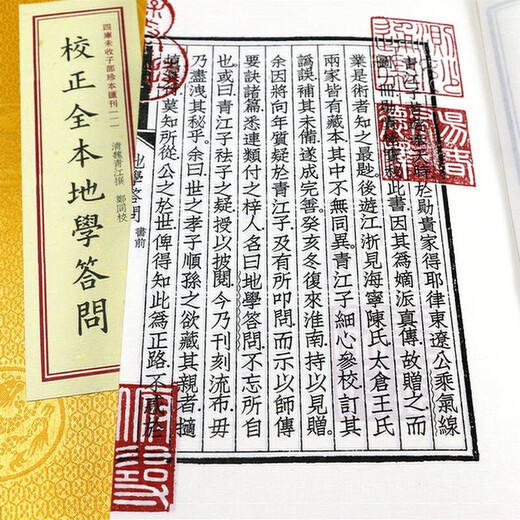 四庫未收子部珍本匯刊(一)
校正全本地學答問
清魏青江撰 鄭同校
青江子奉天時於勛貴家得耶律東遼公乘氣線
圖一冊此書.因其爲嫡派真傳.故贈之.而
業是術者知之最尠.後遊江浙.見海寧陳氏.太倉王氏.
兩家皆有藏本.其中不無同異.青江子細心參校.訂其
譌誤.補其未備.遂成完善.癸亥冬復來淮南.持以見贈.
余因將向年質疑於青江子.及有所叩問.而示以師傳
要訣諸篇.悉連類付之梓人.名曰地學答問.不忘所自
也.或曰.青江子祛子之疑.授以披閱.今乃刊刻流布.毋
乃盡洩其秘乎.余曰.世之孝子順孫之欲藏其親者.擿
莫知所從.公之於世.俾得知此爲正路.不惑於
地學答問
書前